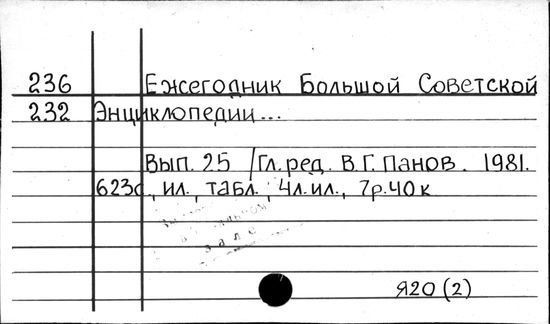 236 Ежегодник Большой Советской
232 Энциклопедии...
Вып. 25 /Гл. ред. В.Г. Панов. 1981.
623с., ил., табл., 4л.ил., 7р.40к
зале
Я20 (2)